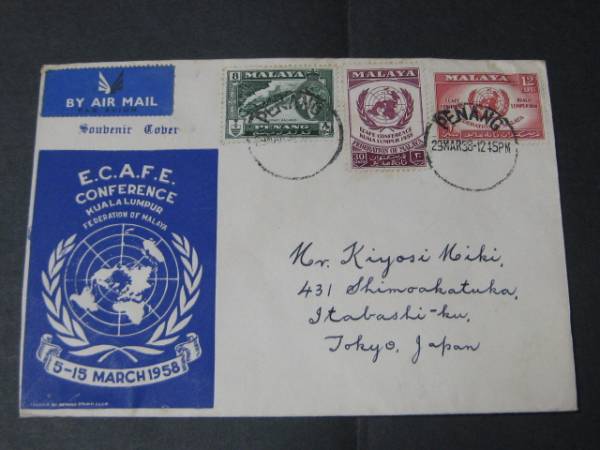 BY AIR MAIL
Souvenir Cover
E.C.A.F.E.
CONFERENCE
KUALA LUMPUR
FEDERATION OF MALAYA
5-15 MARCH 1958
8
MALAYA
PENANG
PENANG
MALAYA
ECAFE CONFERENCE
KUALA LUMPUR 1958
FEDERATION OF MALAYA
30
MALAYA
12
ECAFE
KUALA LUMPUR
PENANG
29MAR58-1245PM
Mr. Kiyosi Miki,
431 Shimoakatuka,
Itabashi-ku,
Tokyo, Japan